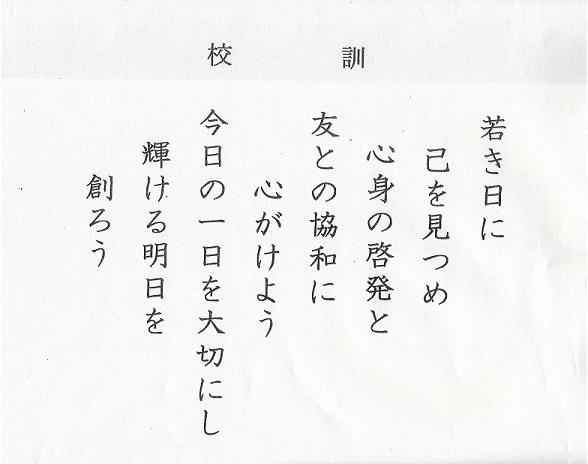 校訓
若き日に
己を見つめ
心身の啓発と
友との協和に
心がけよう
今日の一日を大切にし
輝ける明日を
創ろう